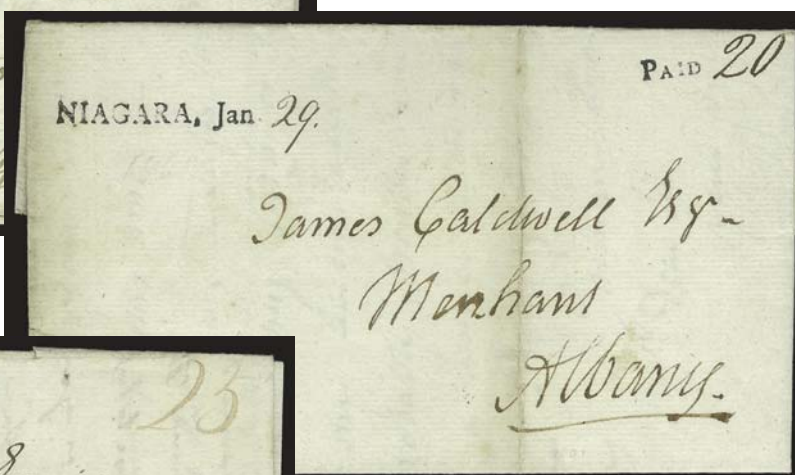 PAID 20
NIAGARA, Jan. 29.
James Caldwell Esqr.
Merchant
Albany.
25